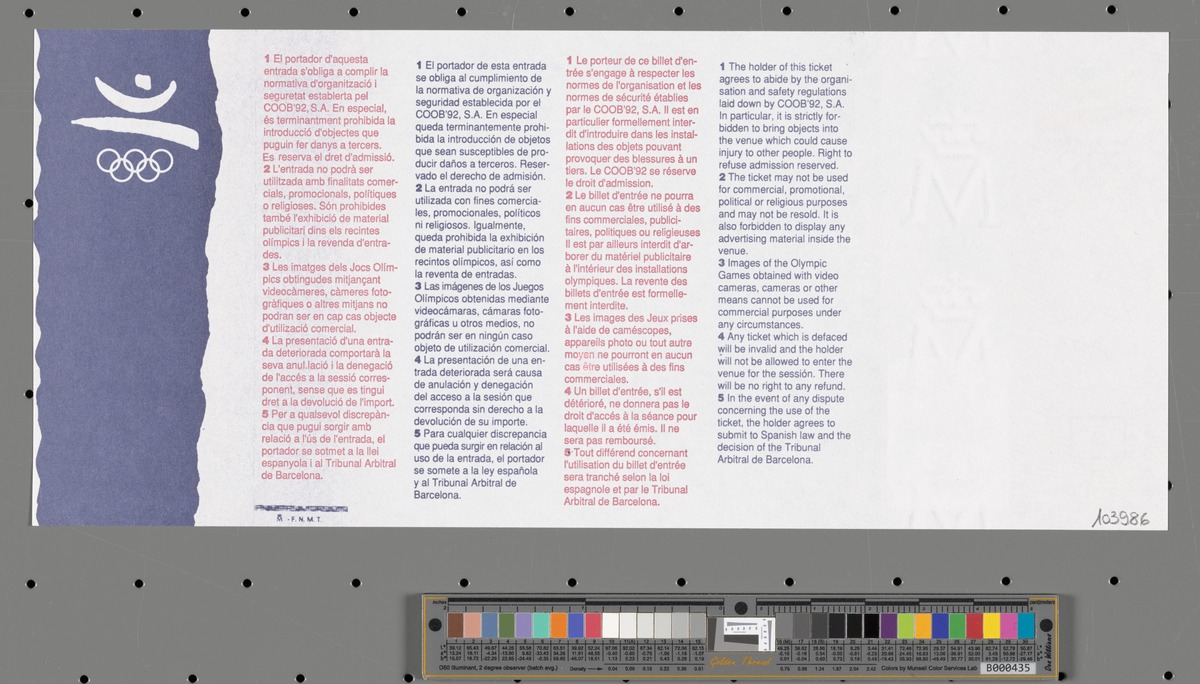 1 El portador d'aquesta
entrada s'obliga a complir la
normativa d'organització i
seguretat establerta pel
COOB'92, S.A. En especial,
és terminantment prohibida la
introducció d'objectes que
puguin fer danys a tercers.
Es reserva el dret d'admissió.
2 L'entrada no podrà ser
utilitzada amb finalitats comer-
cials, promocionals, polítiques
o religioses. Són prohibides
també l'exhibició de material
publicitari dins els recintes
olímpics i la revenda d'entra-
des.
3 Les imatges dels Jocs Olím-
pics obtingudes mitjançant
videocàmeres, càmeres foto-
gràfiques o altres mitjans no
podran ser en cap cas objecte
d'utilizació comercial.
4 La presentació d'una entra-
da deteriorada comportarà la
seva anul.lació i la denegació
de l'accés a la sessió corres-
ponent, sense que es tingui
dret a la devolució de l'import.
5 Per a qualsevol discrepàn-
cia que pugui sorgir amb
relació a l'ús de l'entrada, el
portador se sotmet a la llei
espanyola i al Tribunal Arbitral
de Barcelona.
M - F. N. M. T.
1 El portador de esta entrada
se obliga al cumplimiento de
la normativa de organización y
seguridad establecida por el
COOB'92, S.A. En especial
queda terminantemente prohi-
bida la introducción de objetos
que sean susceptibles de pro-
ducir daños a terceros. Reser-
vado el derecho de admisión.
2 La entrada no podrá ser
utilizada con fines comercia-
les, promocionales, políticos
ni religiosos. Igualmente,
queda prohibida la exhibición
de material publicitario en los
recintos olímpicos, así como
la reventa de entradas.
3 Las imágenes de los Juegos
Olímpicos obtenidas mediante
videocámaras, cámaras foto-
gráficas u otros medios, no
podrán ser en ningún caso
objeto de utilización comercial.
4 La presentación de una en-
trada deteriorada será causa
de anulación y denegación
del acceso a la sesión que
corresponda sin derecho a la
devolución de su importe.
5 Para cualquier discrepancia
que pueda surgir en relación al
uso de la entrada, el portador
se somete a la ley española
y al Tribunal Arbitral de
Barcelona.
1 Le porteur de ce billet d'en-
trée s'engage à respecter les
normes de l'organisation et les
normes de sécurité établies
par le COOB'92, S.A. Il est en
particulier formellement inter-
dit d'introduire dans les instal-
lations des objets pouvant
provoquer des blessures à un
tiers. Le COOB'92 se réserve
le droit d'admission.
2 Le billet d'entrée ne pourra
en aucun cas être utilisé à des
fins commerciales, publici-
taires, politiques ou religieuses
Il est par ailleurs interdit d'ar-
borer du matériel publicitaire
à l'intérieur des installations
olympiques. La revente des
billets d'entrée est formelle-
ment interdite.
3 Les images des Jeux prises
à l'aide de caméscopes,
appareils photo ou tout autre
moyen ne pourront en aucun
cas être utilisées à des fins
commerciales.
4 Un billet d'entrée, s'il est
détérioré, ne donnera pas le
droit d'accès à la séance pour
laquelle il a été émis. Il ne
sera pas remboursé.
5 Tout différend concernant
l'utilisation du billet d'entrée
sera tranché selon la loi
espagnole et par le Tribunal
Arbitral de Barcelona.
1 The holder of this ticket
agrees to abide by the organi-
sation and safety regulations
laid down by COOB'92, S.A.
In particular, it is strictly for-
bidden to bring objects into
the venue which could cause
injury to other people. Right to
refuse admission reserved.
2 The ticket may not be used
for commercial, promotional,
political or religious purposes
and may not be resold. It is
also forbidden to display any
advertising material inside the
venue.
3 Images of the Olympic
Games obtained with video
cameras, cameras or other
means cannot be used for
commercial purposes under
any circumstances.
4 Any ticket which is defaced
will be invalid and the holder
will not be allowed to enter the
venue for the session. There
will be no right to any refund.
5 In the event of any dispute
concerning the use of the
ticket, the holder agrees to
submit to Spanish law and the
decision of the Tribunal
Arbitral de Barcelona.
103986
inches
centimetres
Golden Thread
D50 Illuminant, 2 degree observer
Colors by Munsell Color Services Lab
B000435